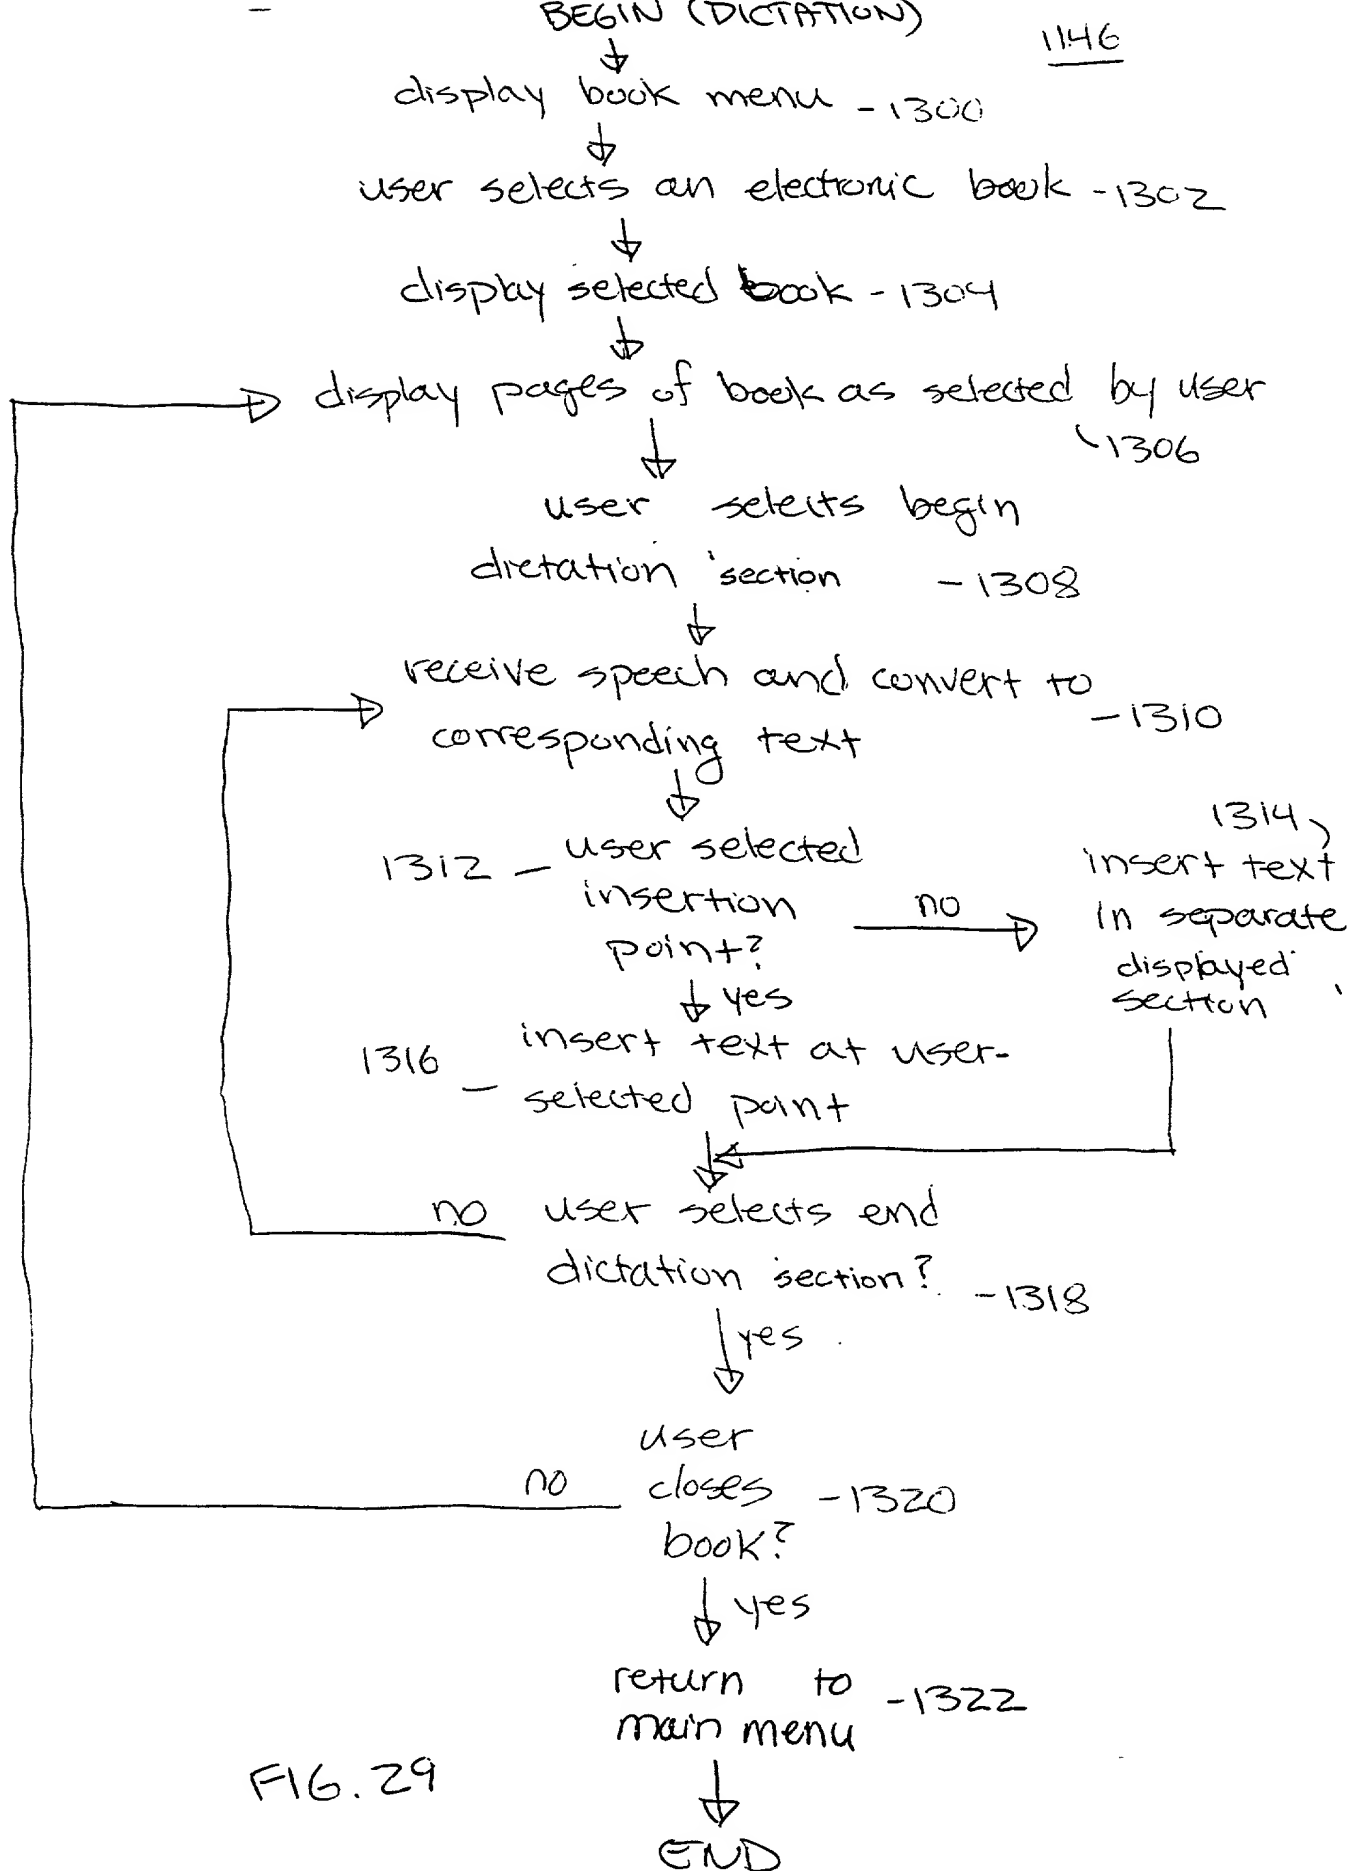 BEGIN (DICTATION)
1146
display book menu - 1300
user selects an electronic book - 1302
display selected book - 1304
display pages of book as selected by user
1306
user selects begin
dictation section - 1308
receive speech and convert to
- 1310
corresponding text
1314
1312 - user selected
insertion
point?
no
insert text
in separate
displayed
section
yes
1316 - insert text at user-
selected point
no user selects end
dictation section? - 1318
yes
user
no closes - 1320
book?
yes
return to
main menu - 1322
FIG. 29
END